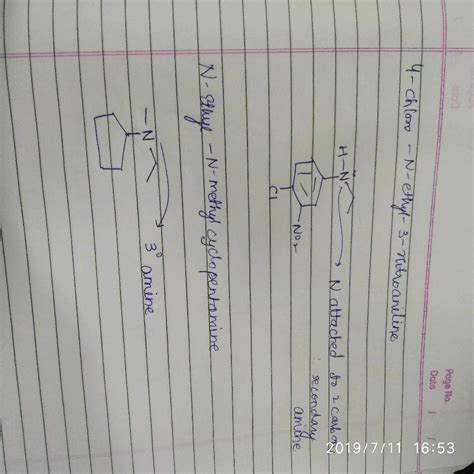 Page No.
Date / /
4-chloro-N-ethyl-3-nitroaniline
H-N̈
N attached to 2 carbon
: secondary
amine
Cl
NO2
N-Ethyl-N-methyl cyclopentamine
-N
3° amine
2019/7/11 16:53